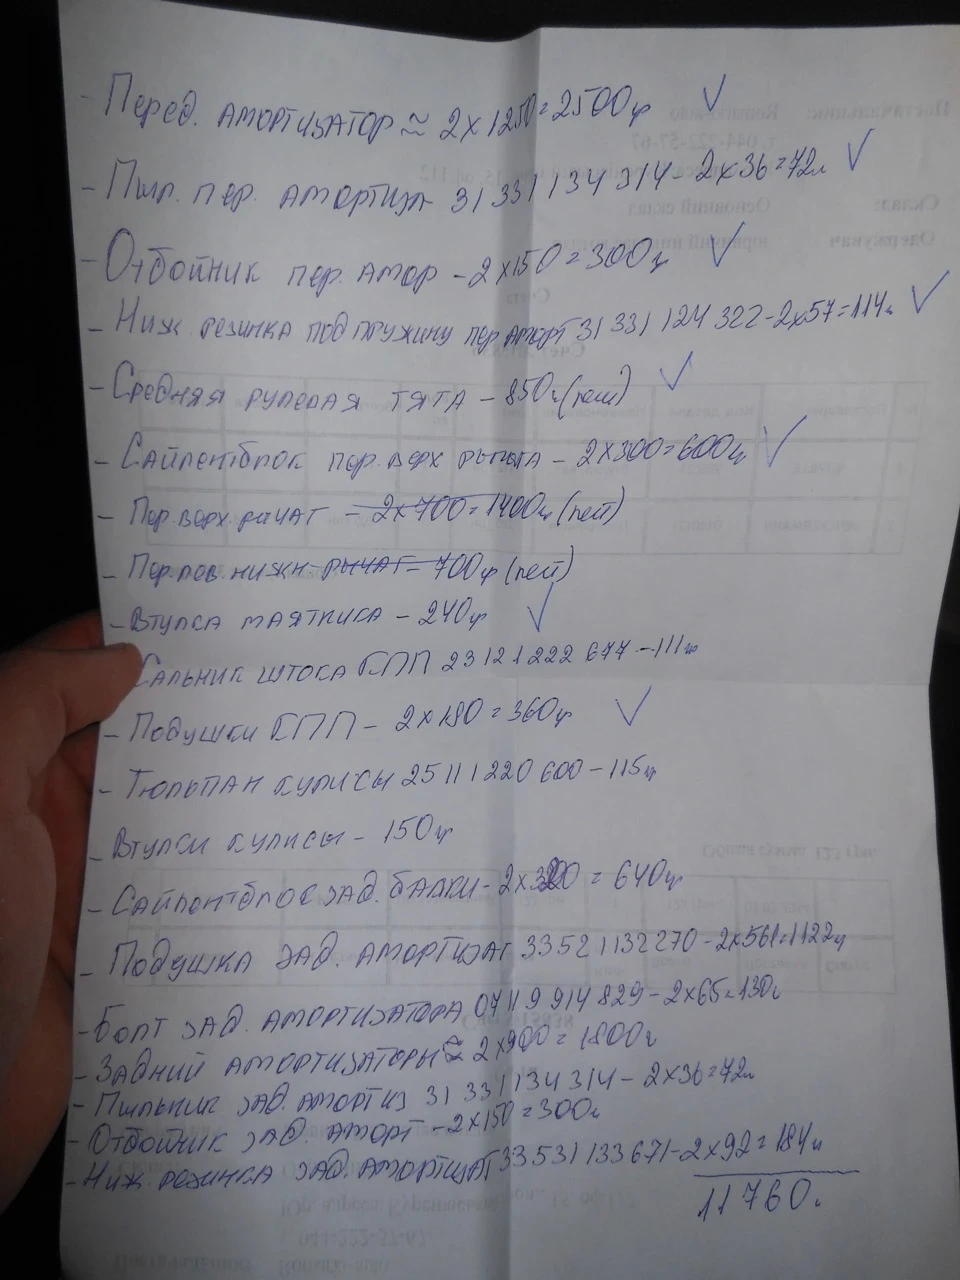 - Перед. амортизатор ≈ 2х1250=2500гр ✓
- Пыл. пер. амортиза 31 331 134 314 - 2х36=72г ✓
- Отбойник пер. амор - 2х150=300гр ✓
- Ниж. резинка под пружину пер аморт 31 331 124 322 - 2х57=114г ✓
- Средняя рулевая тяга - 850г ✓
- Сайлентблок пер. верх рычага - 2х300=600гр ✓
- Пер. верх. рычаг - 2х700=1400гр
- Пер. лев. нижн. рычаг = 700гр
- Втулка маятника - 240гр ✓
- Сальник штока КПП 23 12 1 222 677 - 111гр
- Подушки КПП - 2х180=360гр ✓
- Тюльпан кулисы 25 11 1 220 600 - 115гр
- Втулки кулисы - 150гр
- Сайлентблок зад. балки - 2х320 = 640гр
- Подушка зад. амортизат 33 52 1 132 270 - 2х561=1122г
- Болт зад. амортизатора 07 119 914 829 - 2х65=130г
- Задний амортизаторы ≈ 2х900=1800г
- Пыльник зад. амортиз 31 331 134 314 - 2х36=72г
- Отбойник зад. аморт - 2х150=300г
- Ниж. резинка зад. амортизат 33 531 133 671 - 2х92=184г
11760г